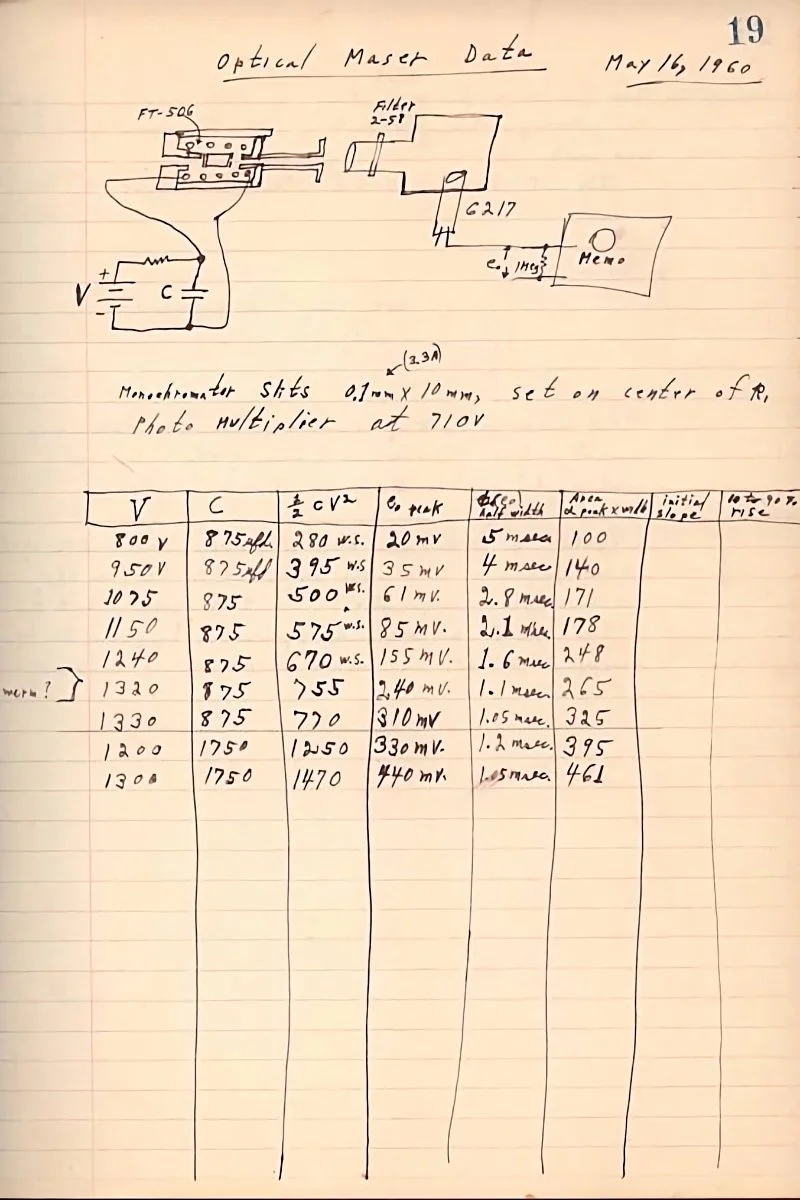 19
Optical Maser Data May 16, 1960
FT-506
Filter
2-58
6217
e₀ 1Meg
Memo
V + - C
(3.3A)
Monochromator Slits 0.1mm X 10mm, set on center of R₁
Photo Multiplier at 710V
V C ½ CV² e₀ peak half width Area α peak x width initial slope 10 to 90% rise
800V 875μfd 280 w.s. 20 mv 5 msec 100
950V 875μfd 395 w.s 35 mv 4 msec 140
1075 875 500 w.s. 61 mv. 2.8 msec. 171
1150 875 575 w.s. 85 mv. 2.1 msec. 178
1240 875 670 w.s. 155 mv. 1.6 msec 248
1320 875 755 240 mv. 1.1 msec. 265
1330 875 770 310 mv 1.05 msec. 325
1200 1750 1250 330 mv. 1.2 msec. 395
1300 1750 1470 440 mv. 1.05 msec. 461